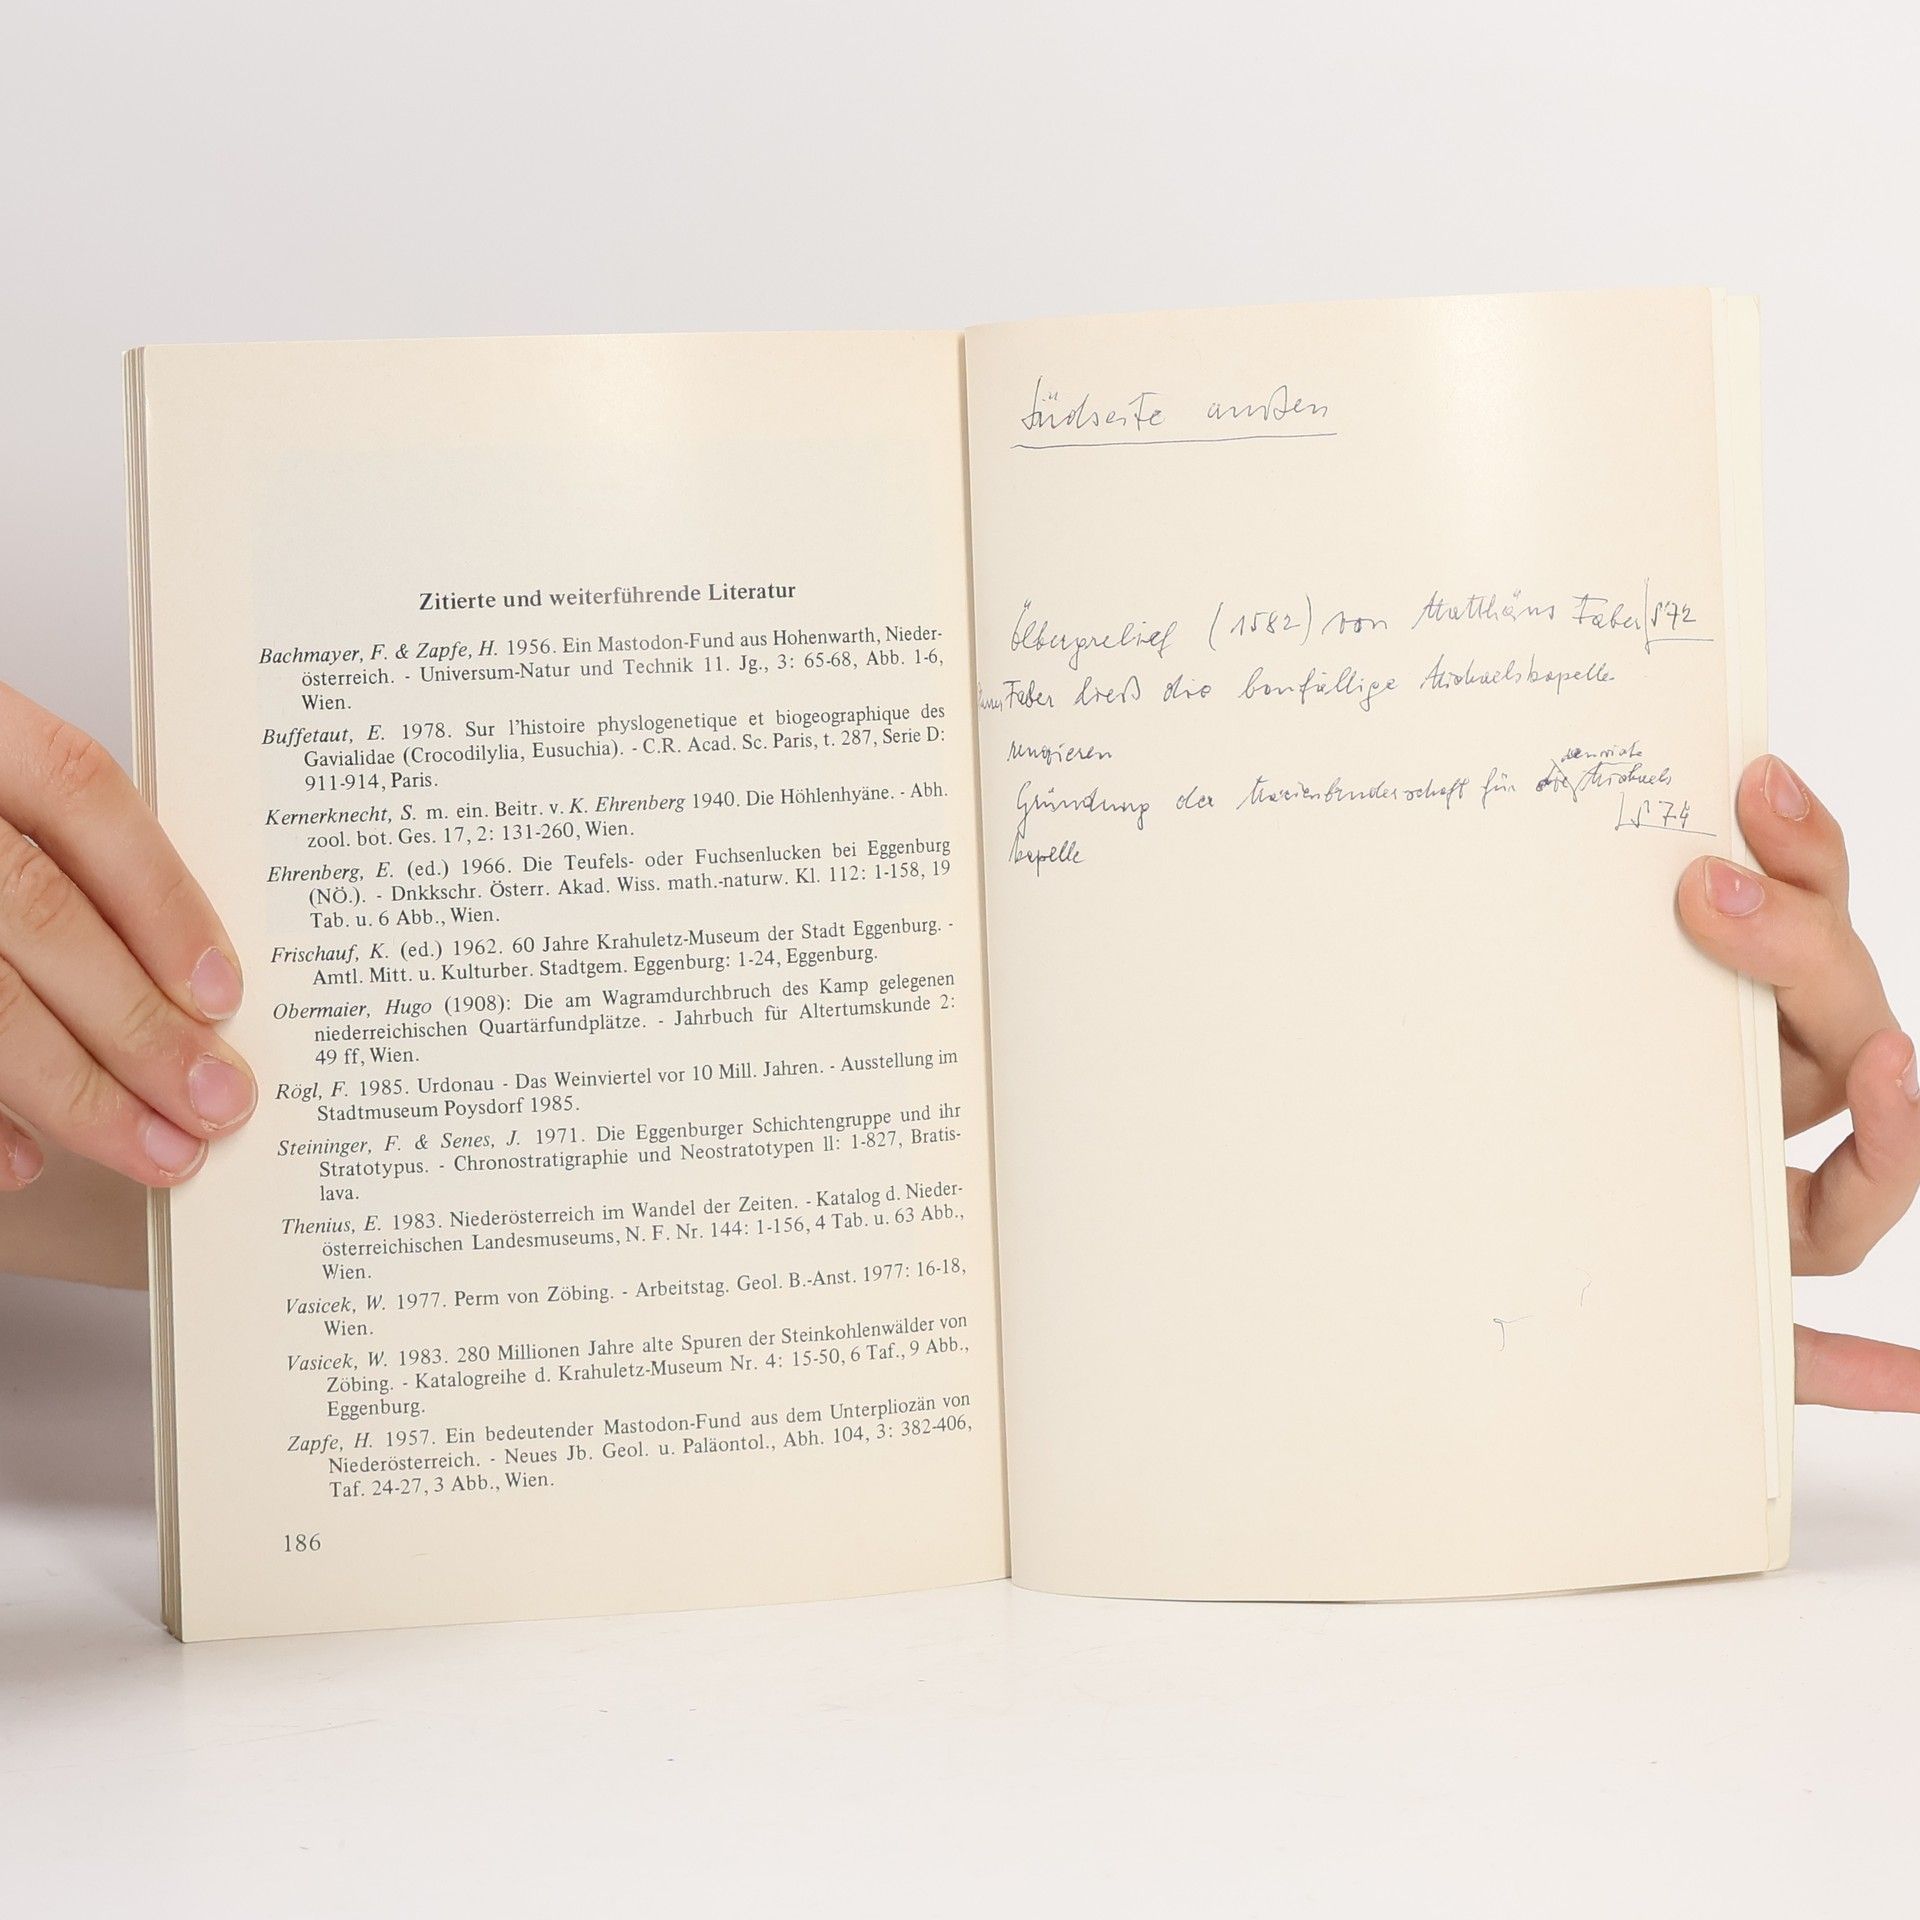 Zitierte und weiterführende Literatur
Bachmayer, F. & Zapfe, H. 1956. Ein Mastodon-Fund aus Hohenwarth, Nieder-
österreich. - Universum-Natur und Technik 11. Jg., 3: 65-68, Abb. 1-6,
Wien.
Buffetaut, E. 1978. Sur l'histoire physlogenetique et biogeographique des
Gavialidae (Crocodilylia, Eusuchia). - C.R. Acad. Sc. Paris, t. 287, Serie D:
911-914, Paris.
Kernerknecht, S. m. ein. Beitr. v. K. Ehrenberg 1940. Die Höhlenhyäne. - Abh.
zool. bot. Ges. 17, 2: 131-260, Wien.
Ehrenberg, E. (ed.) 1966. Die Teufels- oder Fuchsenlucken bei Eggenburg
(NÖ.). - Dnkkschr. Österr. Akad. Wiss. math.-naturw. Kl. 112: 1-158, 19
Tab. u. 6 Abb., Wien.
Frischauf, K. (ed.) 1962. 60 Jahre Krahuletz-Museum der Stadt Eggenburg. -
Amtl. Mitt. u. Kulturber. Stadtgem. Eggenburg: 1-24, Eggenburg.
Obermaier, Hugo (1908): Die am Wagramdurchbruch des Kamp gelegenen
niederreichischen Quartärfundplätze. - Jahrbuch für Altertumskunde 2:
49 ff, Wien.
Rögl, F. 1985. Urdonau - Das Weinviertel vor 10 Mill. Jahren. - Ausstellung im
Stadtmuseum Poysdorf 1985.
Steininger, F. & Senes, J. 1971. Die Eggenburger Schichtengruppe und ihr
Stratotypus. - Chronostratigraphie und Neostratotypen ll: 1-827, Bratis-
lava.
Thenius, E. 1983. Niederösterreich im Wandel der Zeiten. - Katalog d. Nieder-
österreichischen Landesmuseums, N. F. Nr. 144: 1-156, 4 Tab. u. 63 Abb.,
Wien.
Vasicek, W. 1977. Perm von Zöbing. - Arbeitstag. Geol. B.-Anst. 1977: 16-18,
Wien.
Vasicek, W. 1983. 280 Millionen Jahre alte Spuren der Steinkohlenwälder von
Zöbing. - Katalogreihe d. Krahuletz-Museum Nr. 4: 15-50, 6 Taf., 9 Abb.,
Eggenburg.
Zapfe, H. 1957. Ein bedeutender Mastodon-Fund aus dem Unterpliozän von
Niederösterreich. - Neues Jb. Geol. u. Paläontol., Abh. 104, 3: 382-406,
Taf. 24-27, 3 Abb., Wien.
186
Südseite außen
Ölbergrelief (1582) von Matthäus Faber S 72
Faber ließ die baufällige Michaelskapelle
Gründung der Marienbruderschaft für die Michaels
S 74
kapelle